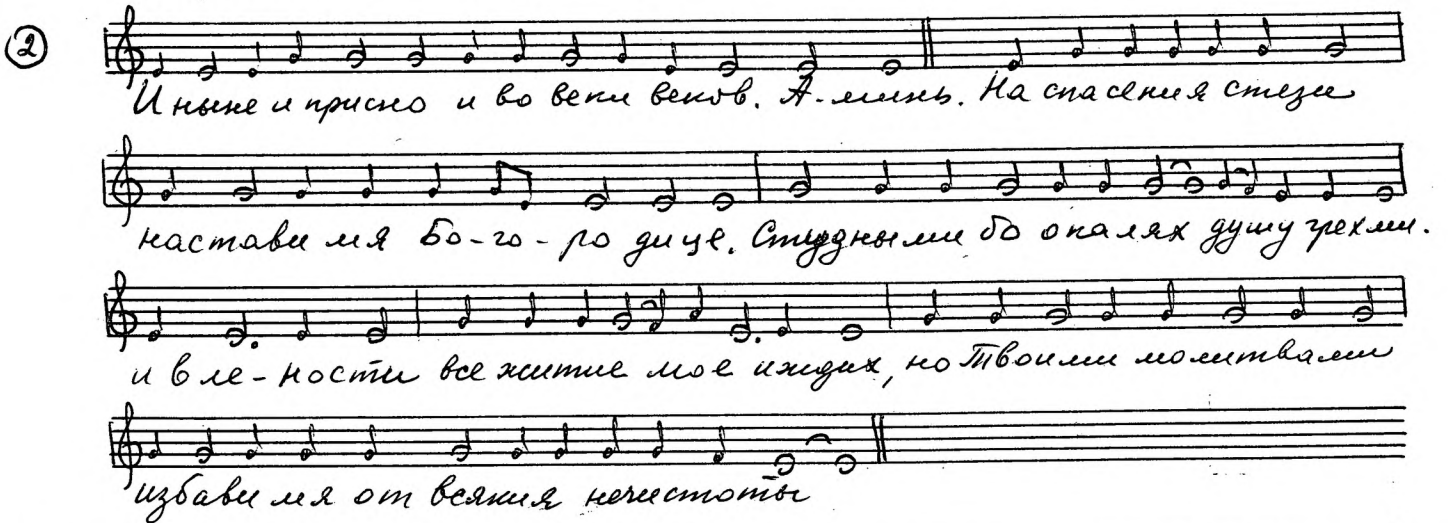 2
И ныне и присно и во веки веков. А-минь. На спасения стези
настави мя Бо-го-ро дице. Студными бо окалях душу грехми.
и в ле-ности все житие мое иждих, но Твоими молитвами
избави мя от всякия нечистоты